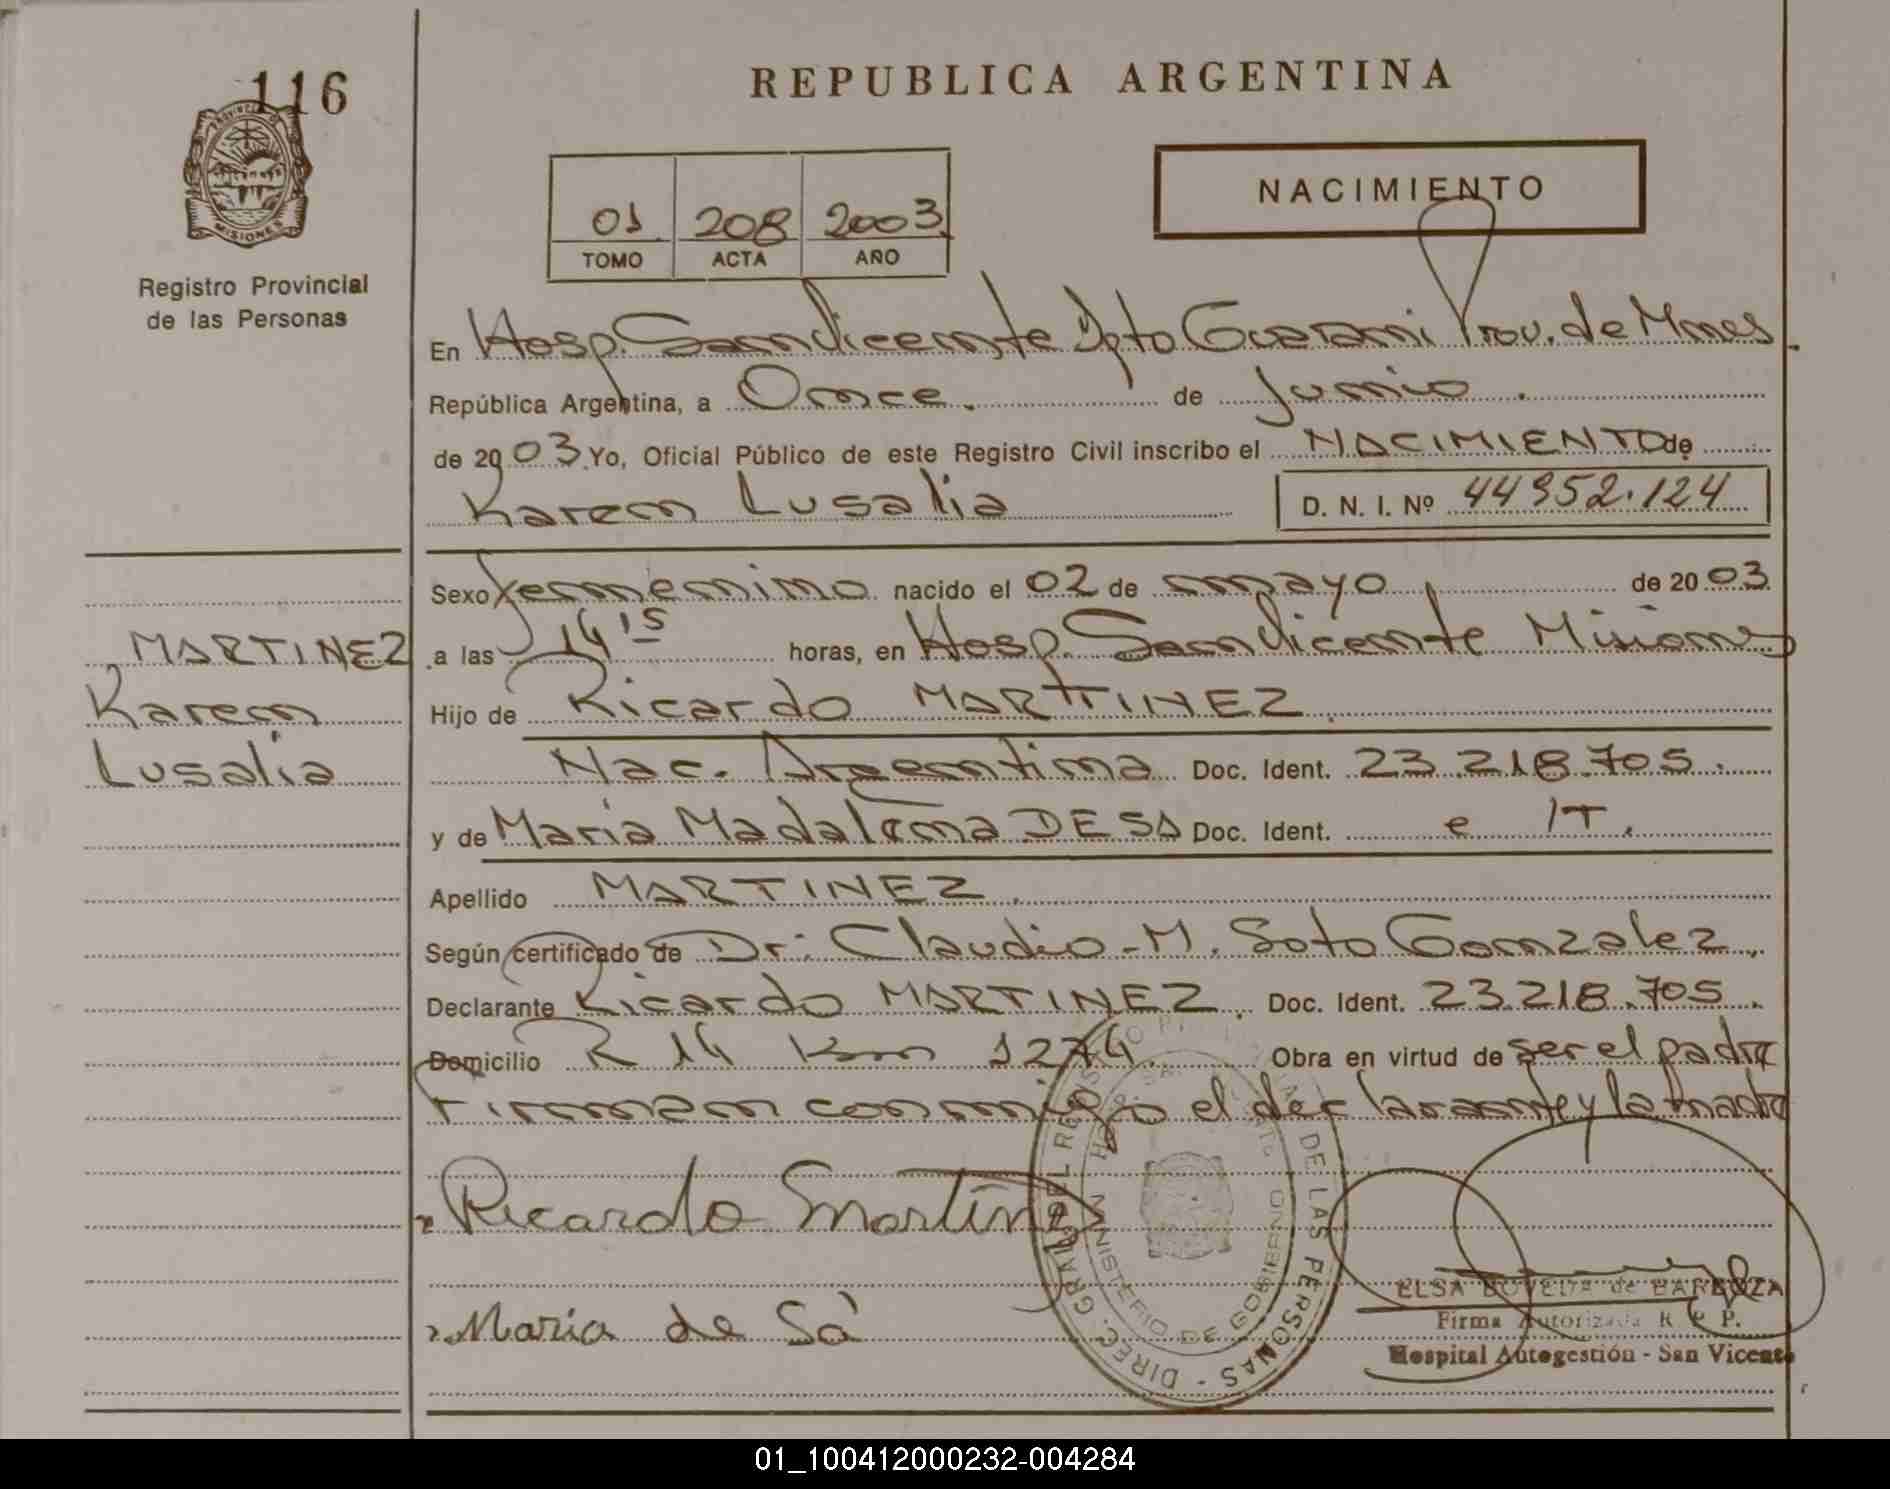 116
REPUBLICA ARGENTINA
PROVINCIA DE
MISIONES
Registro Provincial
de las Personas
01 208 2003
TOMO ACTA AÑO
NACIMIENTO
En Hosp. San Vicente Dpto Guarani Prov. de Mnes.
República Argentina, a Once. de Junio.
de 2003 Yo, Oficial Público de este Registro Civil inscribo el NACIMIENTO de
Karen Lusalia D. N. I. Nº 44952.124
Sexo femenino nacido el 02 de mayo de 2003
MARTINEZ
a las 14 15 horas, en Hosp. San Vicente Misiones
Karen
Hijo de Ricardo MARTINEZ.
Lusalia
Nac. Argentina Doc. Ident. 23.218.705.
y de Maria Madalena DE SA Doc. Ident. e IT.
Apellido MARTINEZ.
Según certificado de Dr: Claudio-M. Soto Gonzalez,
Declarante Ricardo MARTINEZ. Doc. Ident. 23.218.705.
Domicilio R 14 Km 1274. Obra en virtud de ser el padre
Firman conmigo el declarante y la madre
Ricardo Martinez
Maria de Sá
DIREC. GRAL. DEL REGISTRO PROVINCIAL DE LAS PERSONAS -
MINISTERIO DE GOBIERNO
ELSA BOVEDA de BARBOZA
Firma Autorizada R. P. P.
Hospital Autogestión - San Vicente
01_100412000232-004284